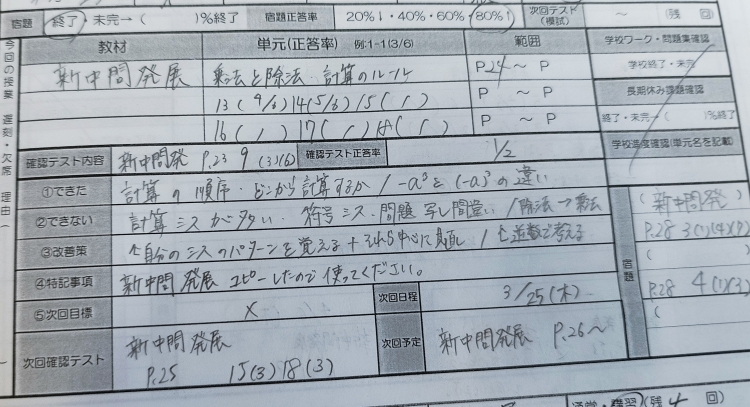 宿題 終了・未完→( )%終了 宿題正答率 20%↓・40%・60%・80%↑ 次回テスト(模試) ～ (残 回)
今回の授業 遅刻・欠席 理由( )
教材 単元(正答率) 例:1-1(3/6) 範囲 学校ワーク・問題集確認
新中問発展 乗法と除法 計算のルール P24～P 学校終了・未完
13(4/6)14(5/6)15( / ) P ～ P 長期休み課題確認
16( / )17( / )18( / ) P ～ P 終了・未完→( )%終了
確認テスト内容 新中問発 P.23 9 (3)(6) 確認テスト正答率 1/2 学校進度確認(単元名を記載)
①できた 計算の順序・どこから計算するか / -a²と(-a)²の違い
②できない 計算ミスが多い・符号ミス・問題写し間違い / 除法→乗法
③改善策 ↑自分のミスのパターンを覚える+それら中心に見直し / ↑逆数で考える
④特記事項 新中問発展 コピーしたので使ってください。
⑤次回目標 × 次回日程 3/25(木)
次回確認テスト 新中問発展 P.25 15(3)18(3) 次回予定 新中問発展 P.26～
宿題
(新中問発)
P.28 3(1)(4)(7)
( )
P.28 4(1)(3)
(
通常・講習(残 4 回)